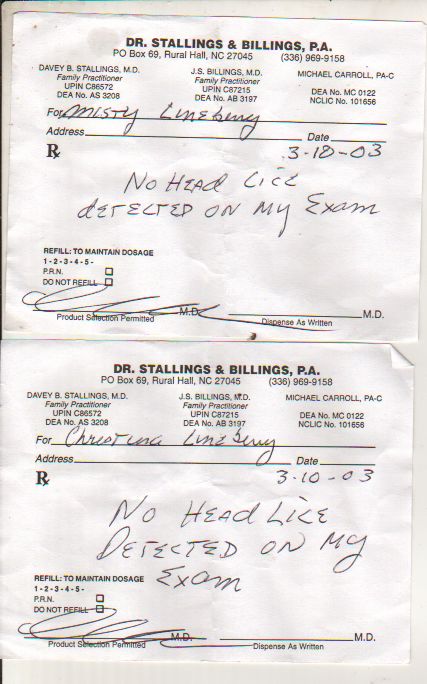 DR. STALLINGS & BILLINGS, P.A.
PO Box 69, Rural Hall, NC 27045 (336) 969-9158
DAVEY B. STALLINGS, M.D. J.S. BILLINGS, M.D. MICHAEL CARROLL, PA-C
Family Practitioner Family Practitioner
UPIN C86572 UPIN C87215 DEA No. MC 0122
DEA No. AS 3208 DEA No. AB 3197 NCLIC No. 101656
For Misty Lineberry
Address Date
Rx 3-10-03
No Head Lice
detected on my Exam
REFILL: TO MAINTAIN DOSAGE
1 - 2 - 3 - 4 - 5 -
P.R.N.
DO NOT REFILL
M.D. M.D.
Product Selection Permitted Dispense As Written
DR. STALLINGS & BILLINGS, P.A.
PO Box 69, Rural Hall, NC 27045 (336) 969-9158
DAVEY B. STALLINGS, M.D. J.S. BILLINGS, M.D. MICHAEL CARROLL, PA-C
Family Practitioner Family Practitioner
UPIN C86572 UPIN C87215 DEA No. MC 0122
DEA No. AS 3208 DEA No. AB 3197 NCLIC No. 101656
For Christina Lineberry
Address Date
Rx 3-10-03
No Head Lice
Detected on my
Exam
REFILL: TO MAINTAIN DOSAGE
1 - 2 - 3 - 4 - 5 -
P.R.N.
DO NOT REFILL
M.D. M.D.
Product Selection Permitted Dispense As Written